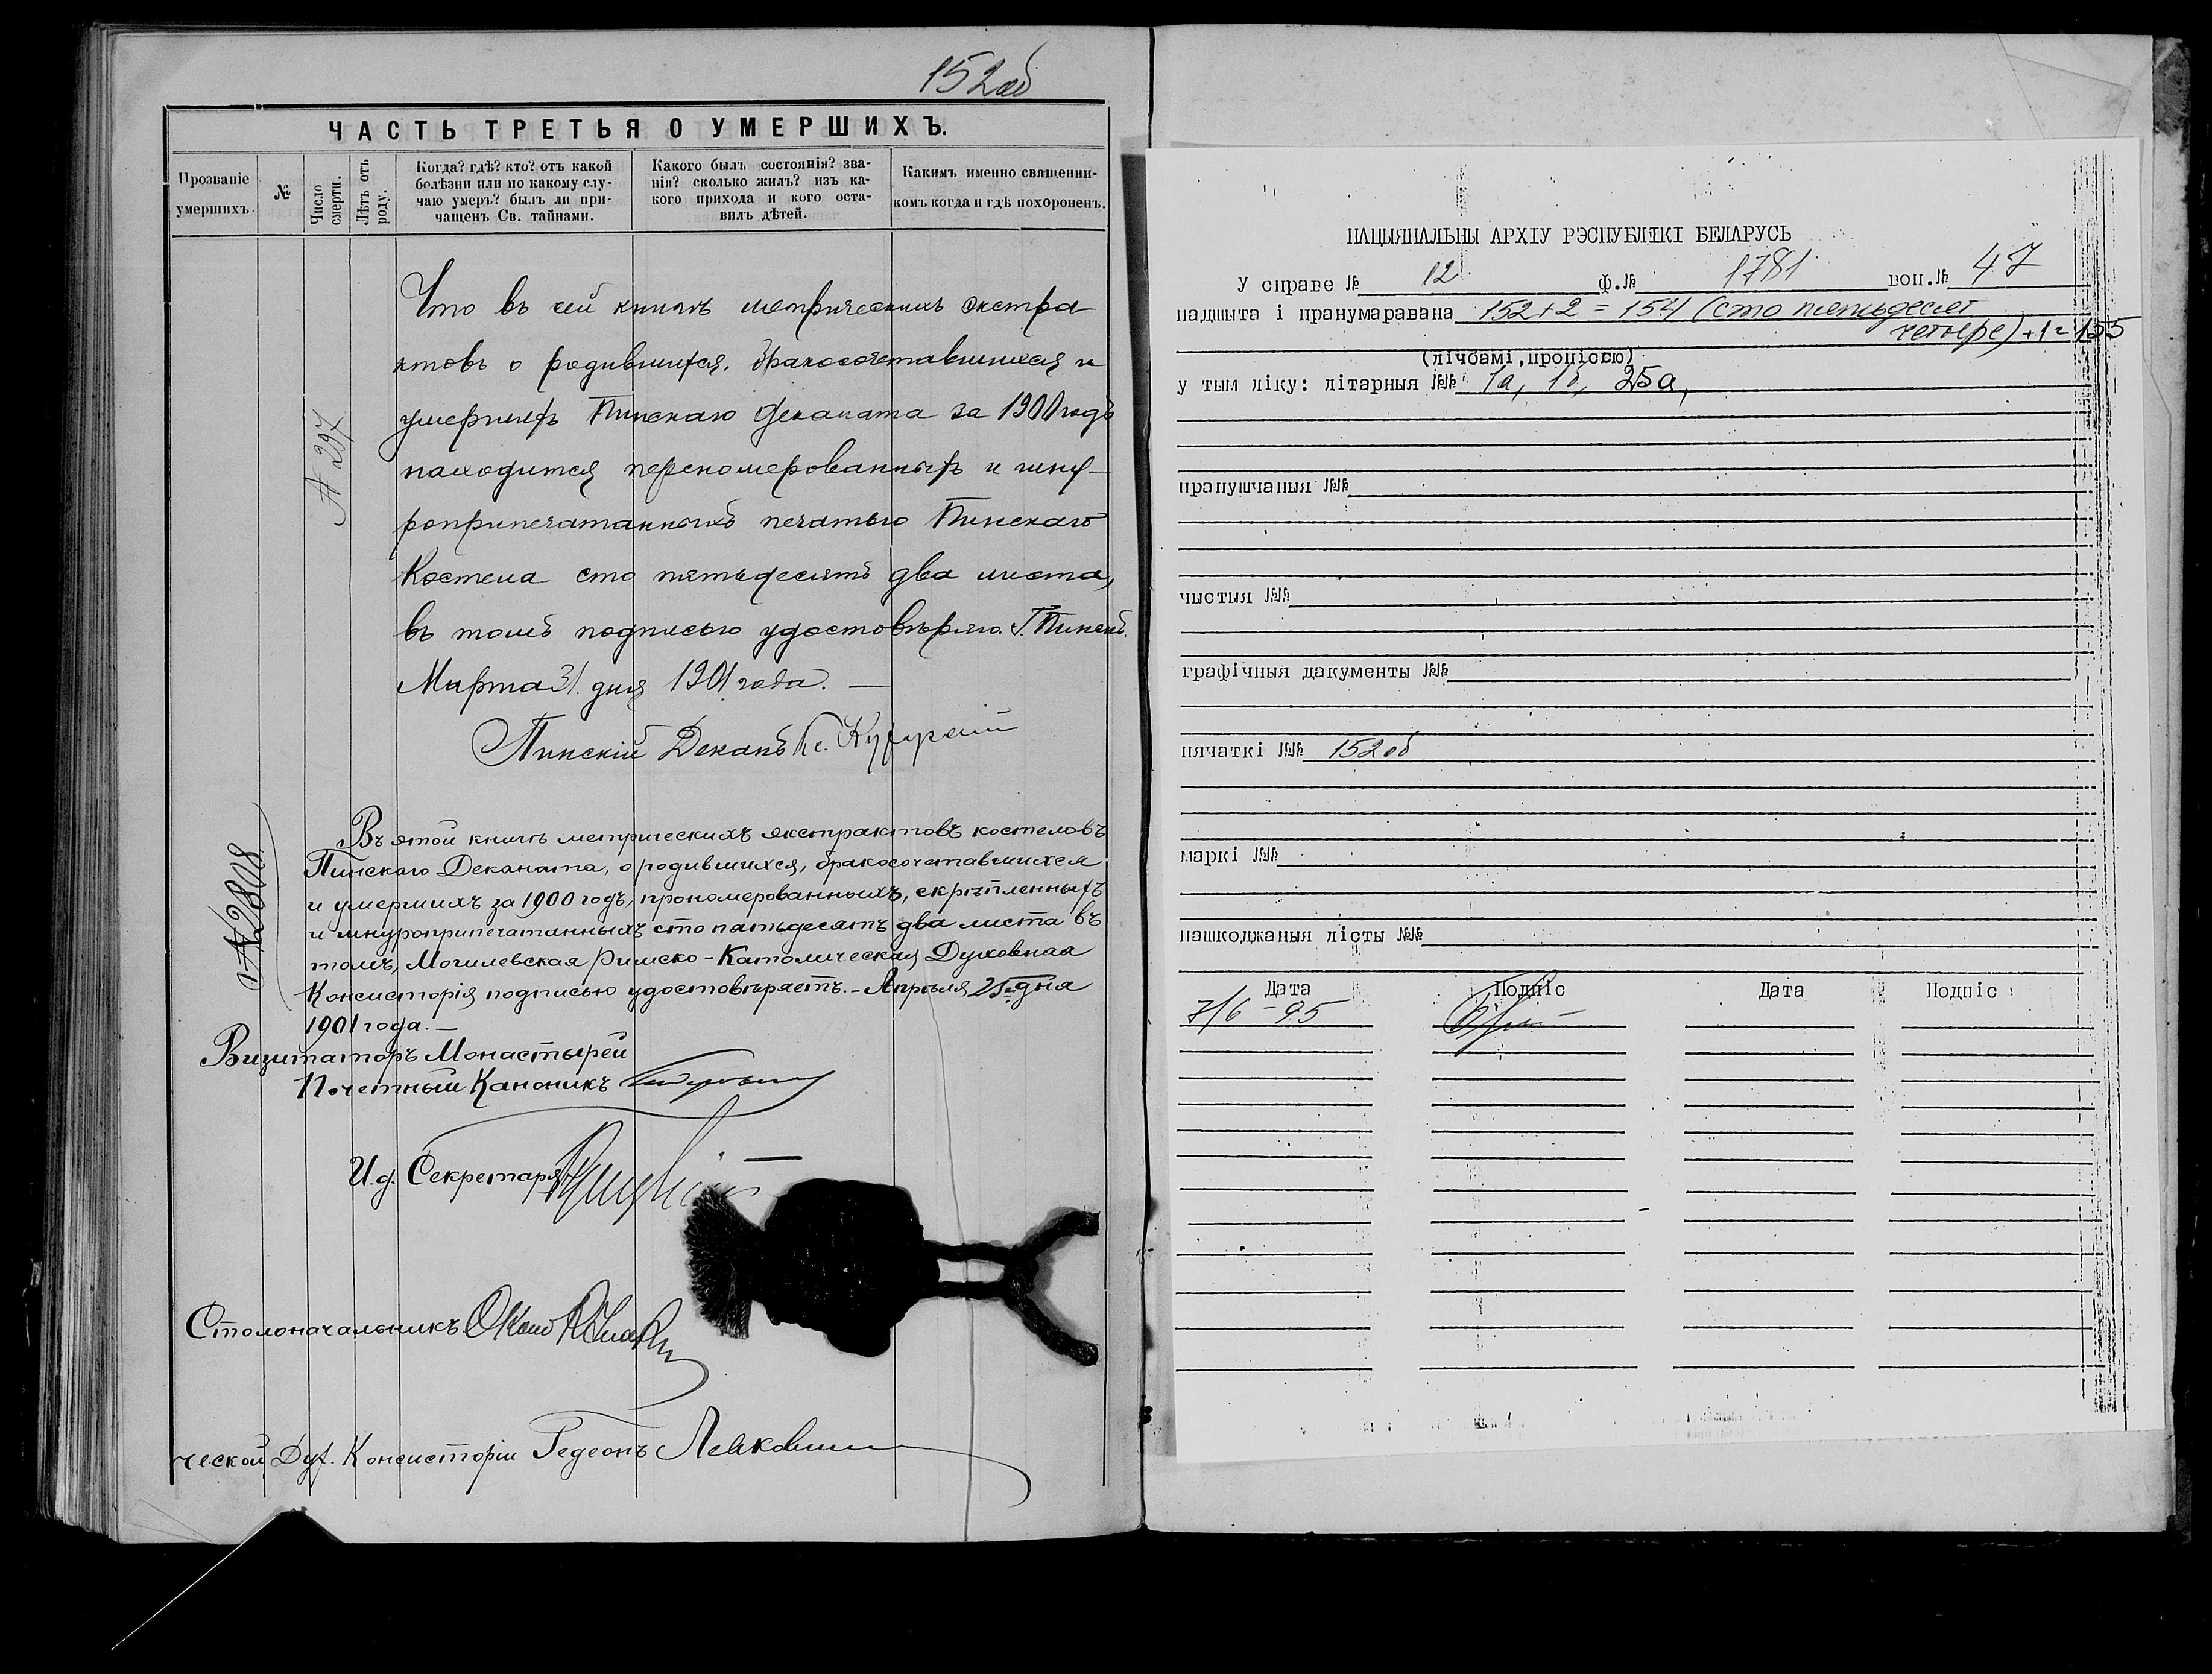 152об
ЧАСТЬ ТРЕТЬЯ О УМЕРШИХЪ.
Прозваніе умершихъ.
№
Число смерти.
Лѣтъ отъ роду.
Когда? гдѣ? кто? отъ какой
болѣзни или по какому слу-
чаю умеръ? былъ ли при-
чащенъ Св. тайнами.
Какого былъ состоянія? зва-
нія? сколько жилъ? изъ ка-
кого прихода и кого оста-
вилъ дѣтей.
Какимъ именно священни-
комъ когда и гдѣ похороненъ.
Что въ сей книгѣ метрическихъ экстра
ктовъ о родившихся, бракосочетавшихся и
умершихъ Пинскаго Деканата за 1900 годъ
находится переномерованныхъ и шну-
роприпечатанныхъ печатью Пинскаго
Костела сто пятьдесятъ два листа,
въ томъ подписью удостовѣряю. Г. Пинскъ.
Марта 31 дня 1901 года. —
№ 297
Пинскій Деканъ Кс.
Въ этой книгѣ метрическихъ экстрактовъ костеловъ
Пинскаго Деканата, о родившихся, бракосочетавшихся
и умершихъ за 1900 годъ, прономерованныхъ, скрѣпленныхъ
и шнуроприпечатанныхъ сто пятьдесятъ два листа въ
томъ, Могилевская Римско-Католическая Духовная
Консисторія подписью удостовѣряетъ. - Апрѣля 25 дня
1901 года. —
№ 2808
Визитаторъ Монастырей
Почетный Каноникъ
И.д. Секретаря
Столоначальникъ
ческой Дух. Консисторіи Гедеонъ Левкович
НАЦЫЯНАЛЬНЫ АРХІУ РЭСПУБЛІКІ БЕЛАРУСЬ
У справе № 12 ф.№ 1781 воп.№ 47
падшыта і пранумаравана 152+2 = 154 (сто пятьдесят
четыре) +1=155
(лічбамі,пропіссю)
у тым ліку: літарныя №№ 1а, 1б, 25а,
прапушчаныя №№
чыстыя №№
графічныя дакументы №№
пячаткі №№ 152об
маркі №№
пашкоджаныя лісты №№
Дата Подпіс Дата Подпіс
7/6 -95